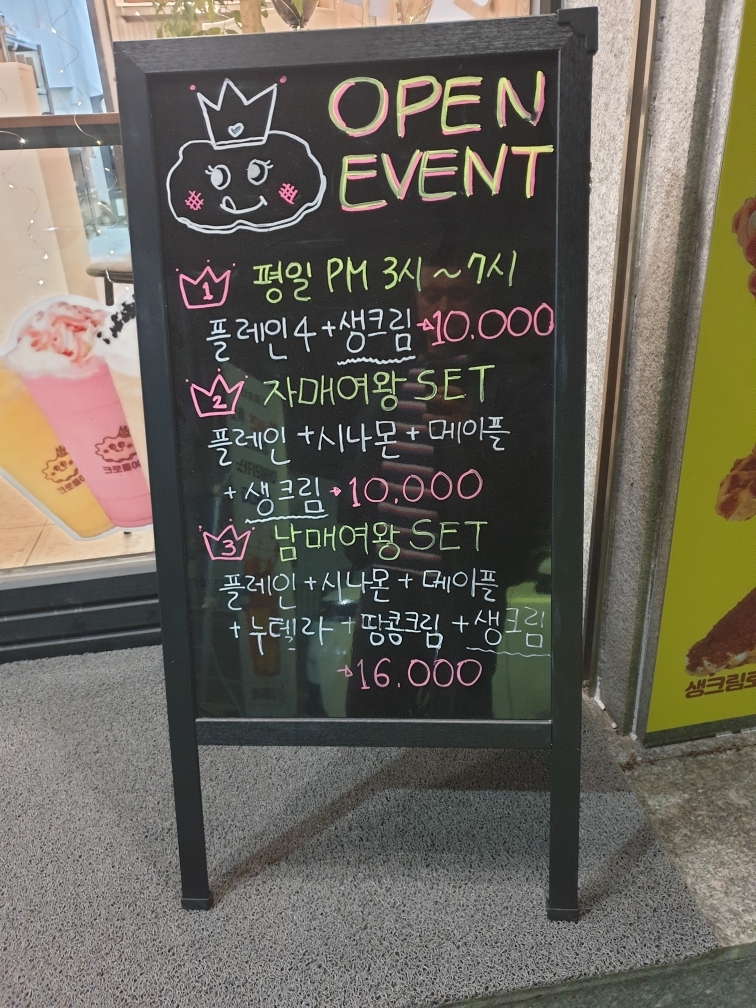 OPEN
EVENT
1 평일 PM 3시~7시
플레인4+생크림→10.000
2 자매여왕 SET
플레인+시나몬+메이플
+생크림→10.000
3 남매여왕 SET
플레인+시나몬+메이플
+누텔라+땅콩크림+생크림
→16.000
생크림